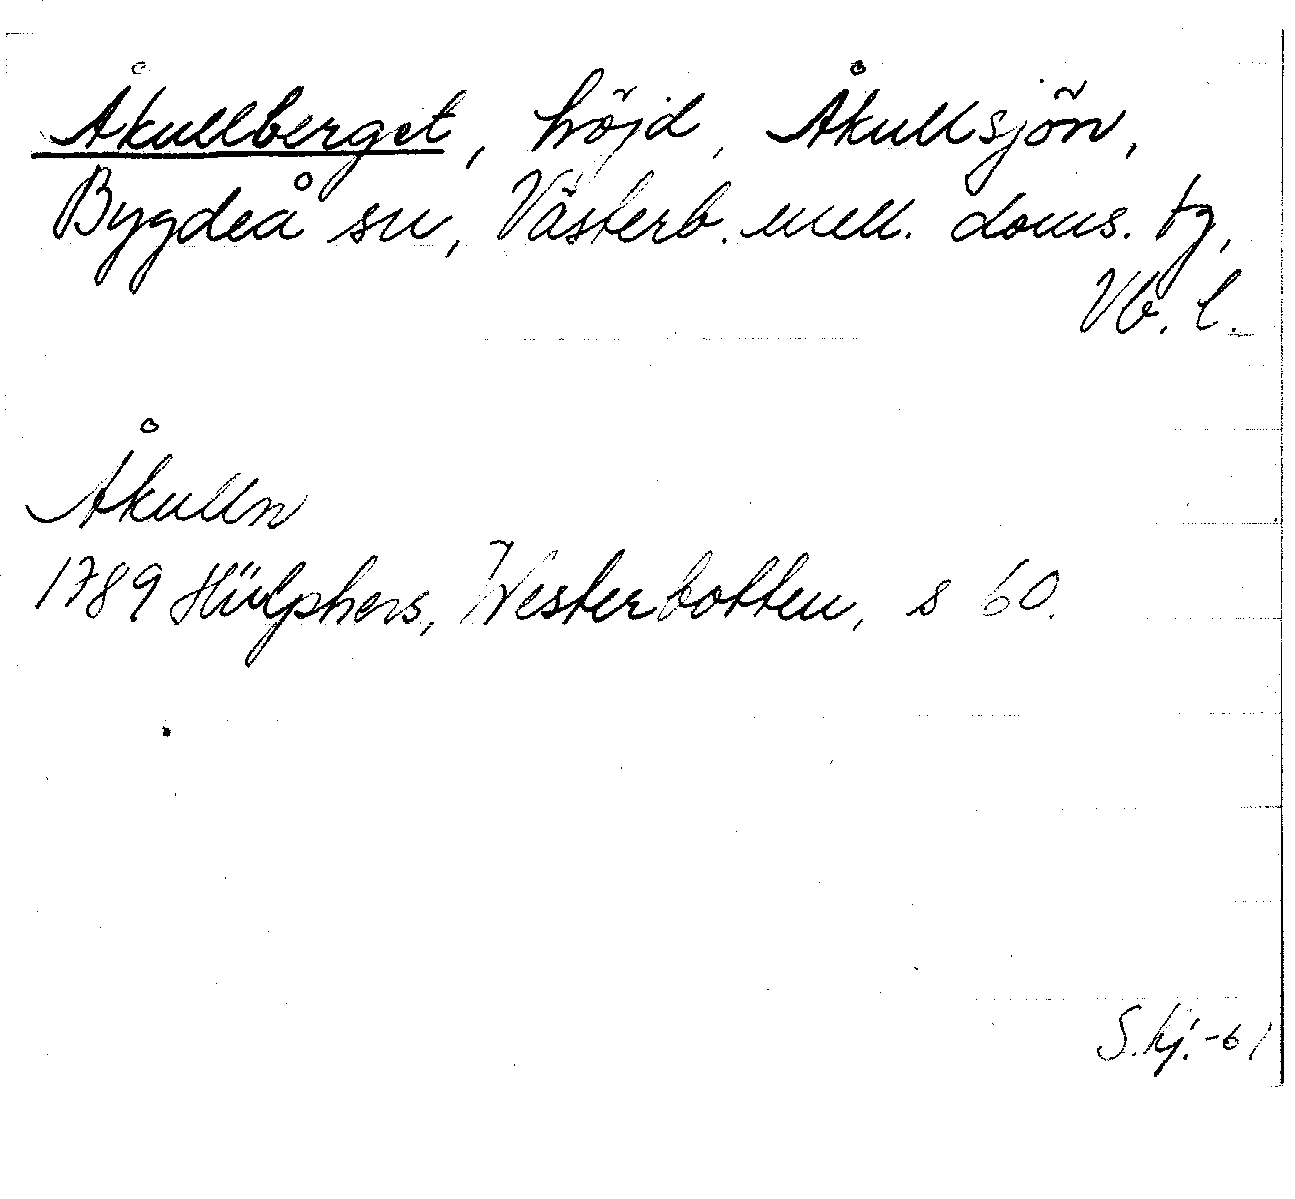 Åkullberget, höjd, Åkullsjön,
Bygdeå sn, Västerb. mell. doms. tg,
Vb. l.
Åkulln
1789 Hülphers, Westerbotten, s 60.
S. Hj. -61